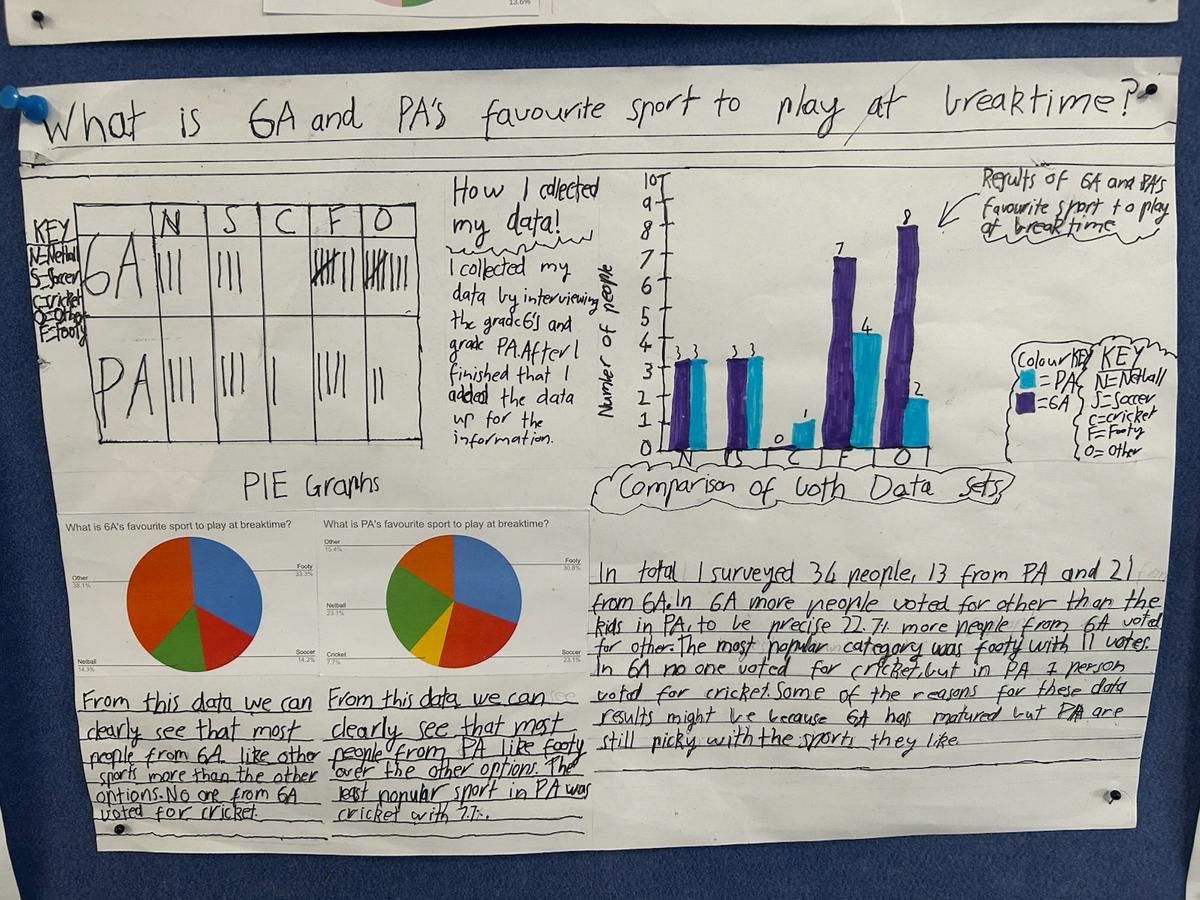 13.6%
What is 6A and PA's favourite sport to play at breaktime?
KEY
N=Netball
S=Soccer
C=cricket
O=Other
F=Footy
N S C F O
6A
PA
How I collected
my data!
I collected my
data by interviewing
the grade 6's and
grade PA. After I
finished that I
added the data
up for the
information.
Number of people
10
9
8
7
6
5
4
3
2
1
0
3 3 3 3 0 1 7 4 8 2
N S C F O
Results of 6A and PA's
favourite sport to play
at breaktime
Colour KEY
= PA
= 6A
KEY
N=Netball
S=Soccer
C=cricket
F=Footy
O=Other
PIE Graphs
What is 6A's favourite sport to play at breaktime?
Other
38.1%
Footy
33.3%
Netball
14.3%
Soccer
14.2%
What is PA's favourite sport to play at breaktime?
Other
15.4%
Footy
30.8%
Netball
23.1%
Cricket
7.7%
Soccer
23.1%
From this data we can
clearly see that most
people from 6A like other
sports more than the other
options. No one from 6A
voted for cricket.
From this data, we can
clearly see that most
people from PA like footy
over the other options. The
least popular sport in PA was
cricket with 7.7%.
Comparison of both Data sets
In total I surveyed 34 people, 13 from PA and 21
from 6A. In 6A more people voted for other than the
kids in PA, to be precise 22.7% more people from 6A voted
for other. The most popular category was footy with 11 votes.
In 6A no one voted for cricket, but in PA 1 person
voted for cricket. Some of the reasons for these data
results might be because 6A has matured but PA are
still picky with the sports they like.